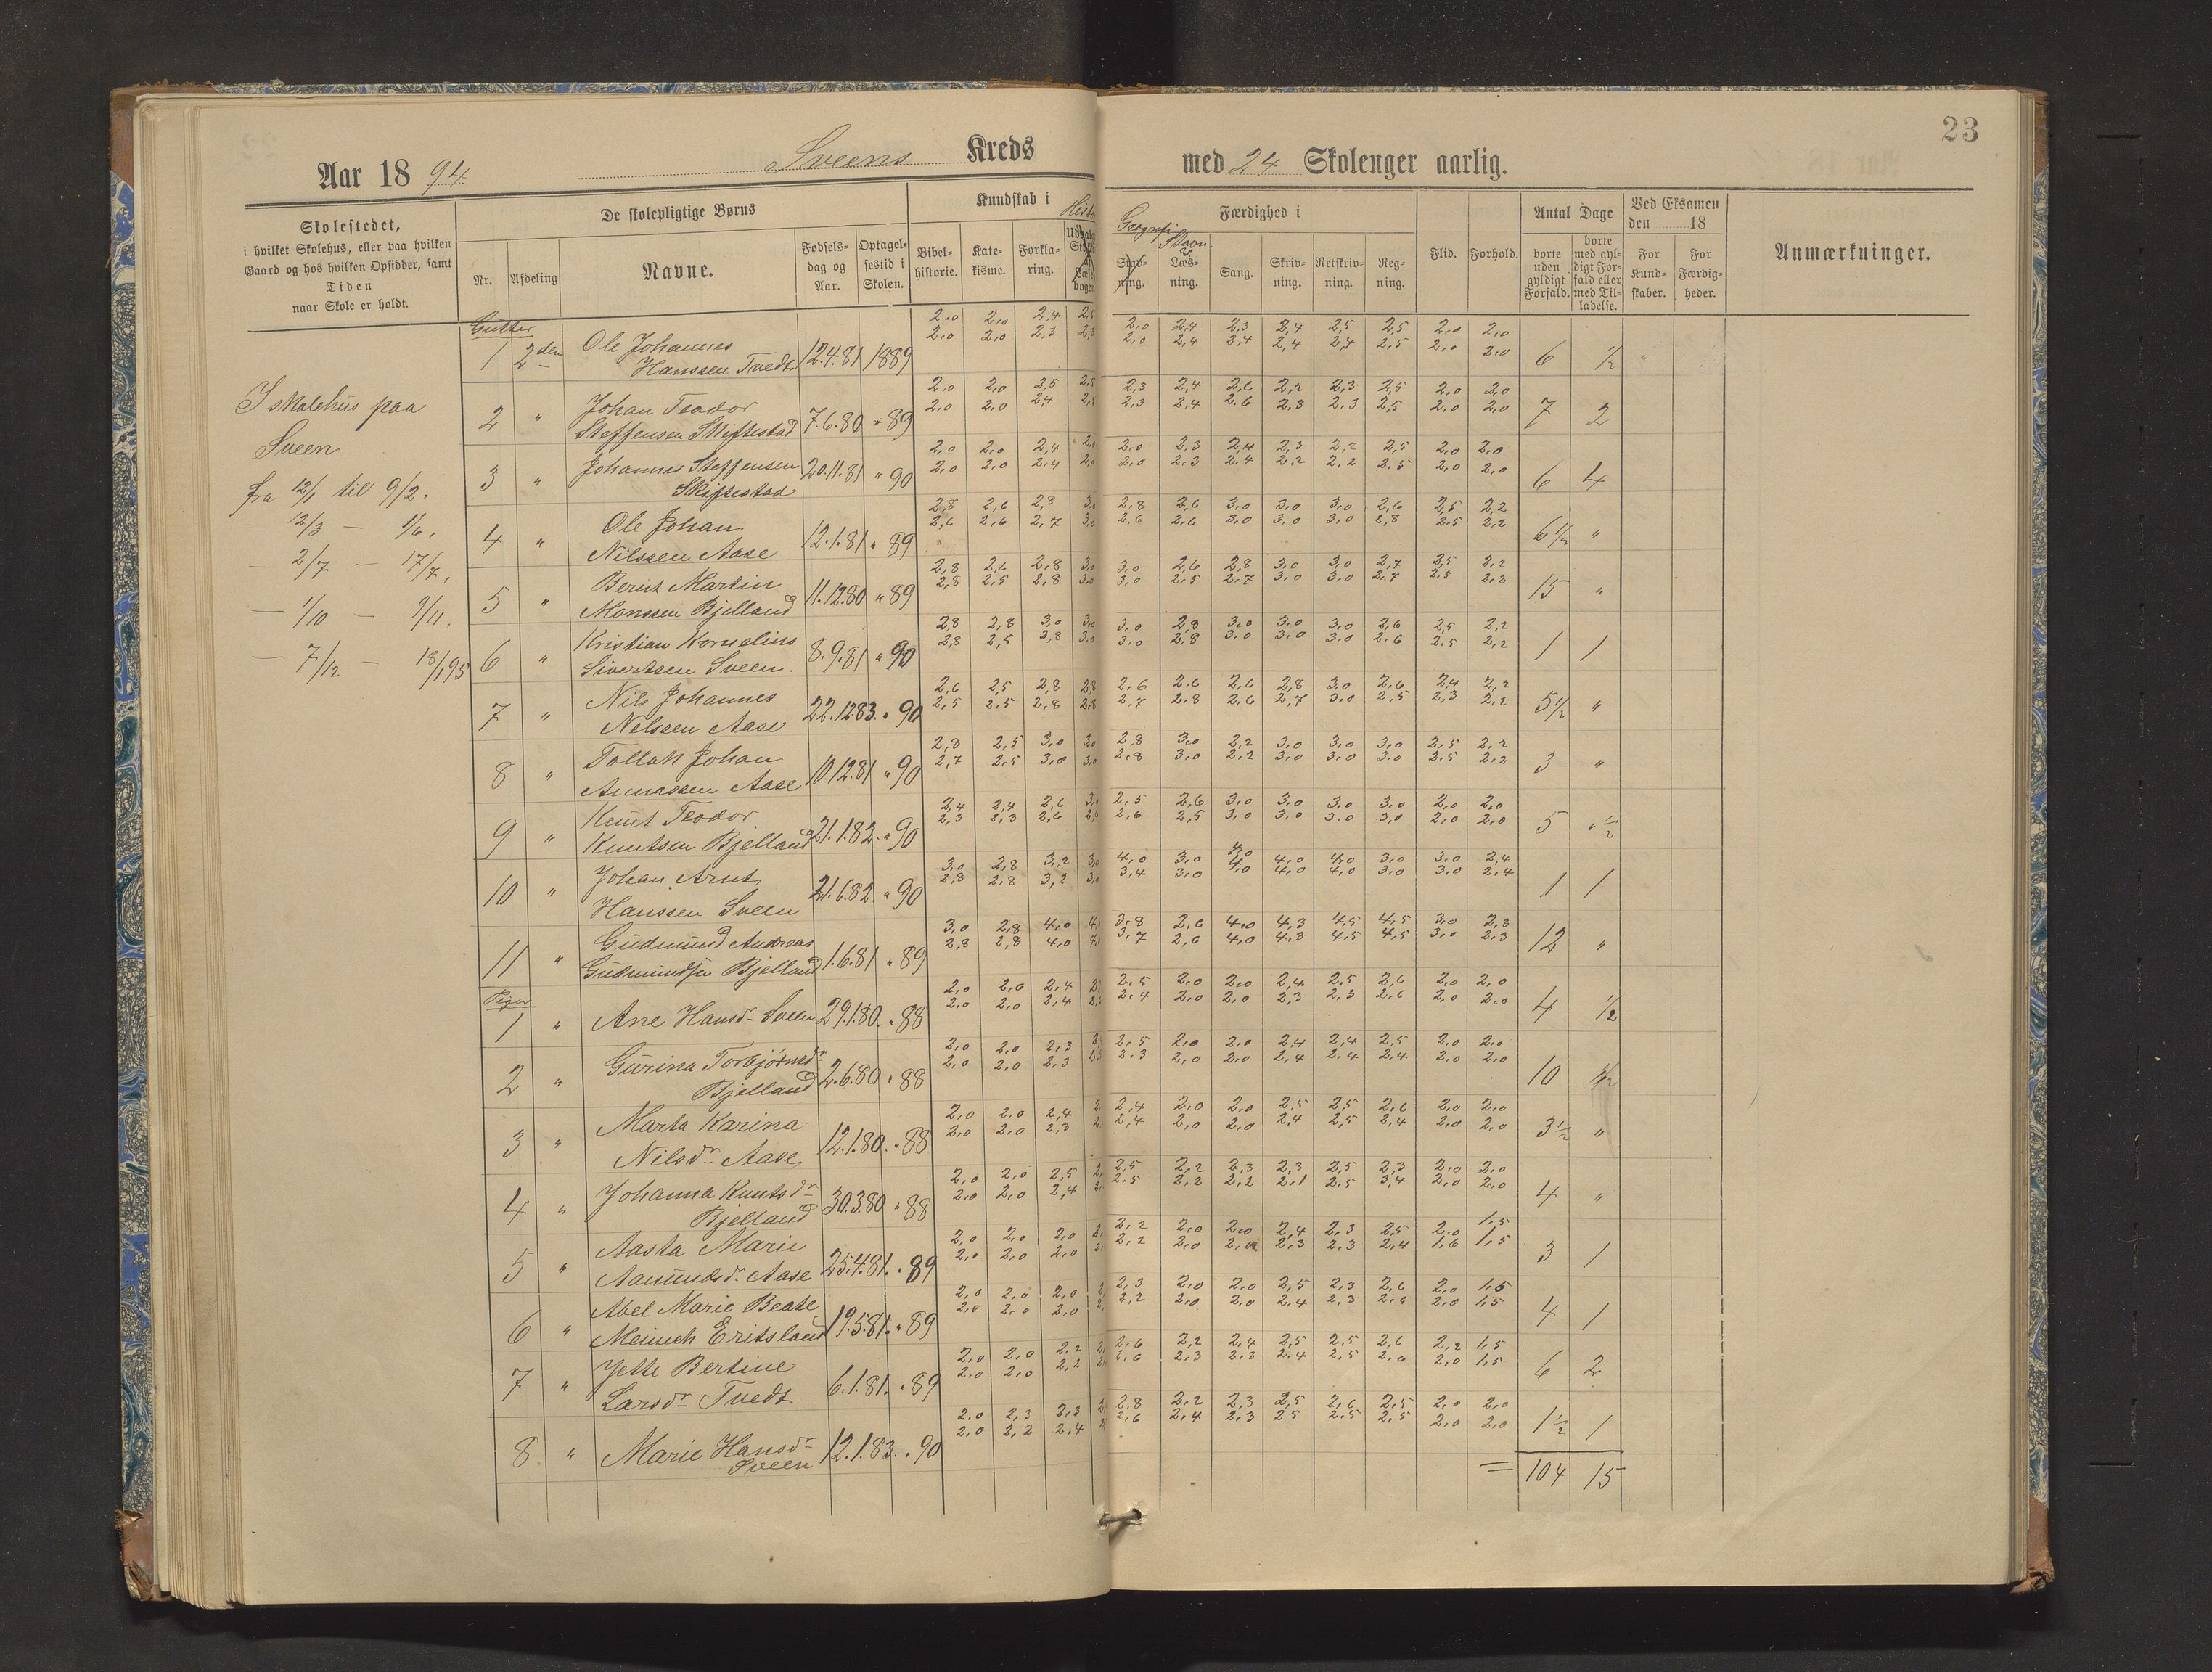 23
Aar 18 94 Sveens Kreds med 24 Skolenger aarlig.
Skolestedet,
i hvilket Skolehus, eller paa hvilken
Gaard og hos hvilken Opsidder, samt
Tiden
naar Skole er holdt.
De skolepligtige Børns
Nr. Afdeling Navne. Fødsels-dag og Aar. Optagel-sestid i Skolen.
Kundskab i
Bibel-historie. Kate-kisme. Forkla-ring.
Færdighed i
Geografi
Læs-ning. Sang. Skriv-ning. Retskriv-ning. Reg-ning.
Flid. Forhold.
Antal Dage
borte uden gyldigt Forfald. borte med gyl-digt For-fald eller med Til-ladelse.
Ved Eksamen
den 18
For Kund-skaber. For Færdig-heder.
Anmærkninger.
I skolehus paa
Sveen
fra 12/1 til 9/2.
12/3 — 1/6,
— 2/7 — 17/7,
— 1/10 — 9/11,
— 7/12 — 18/1 95
Gutter
1 2den Ole Johannes
Hanssen Tvedt 12.4.81 1889
2,0 2,0 2,4 2,5 2,0 2,4 2,3 2,4 2,5 2,5 2,0 2,0
2,0 2,0 2,3 2,3 2,0 2,4 2,4 2,4 2,4 2,5 2,0 2,0 6 1/2
2 " Johan Teodor
Steffensen Skiftestad 7.6.80 " 89
2,0 2,0 2,5 2,5 2,3 2,4 2,6 2,2 2,3 2,5 2,0 2,0
2,0 2,0 2,4 2,3 2,4 2,6 2,3 2,3 2,5 2,0 2,0 7 2
3 " Johannes Steffensen
Skiftestad 20.11.81 " 90
2,0 2,0 2,4 2,0 2,0 2,3 2,4 2,3 2,2 2,5 2,0 2,0
2,0 2,0 2,4 2,0 2,0 2,3 2,4 2,2 2,2 2,5 2,0 2,0 6 4
4 " Ole Johan
Nilssen Aase 12.1.81 " 89
2,8 2,6 2,8 3,0 2,8 2,6 3,0 3,0 3,0 2,6 2,5 2,2
2,6 2,6 2,7 3,0 2,6 2,6 3,0 3,0 3,0 2,8 2,5 2,2 6 1/2 "
5 " Bernt Martin
Monssen Bjelland 11.12.80 " 89
2,8 2,6 2,8 3,0 3,0 2,6 2,8 3,0 3,0 2,7 2,5 2,2
2,8 2,5 2,8 3,0 3,0 2,5 2,7 3,0 3,0 2,7 2,5 2,2 15 "
6 " Kristian Kornelius
Sivertsen Sveen. 8.9.81 " 90
2,8 2,8 3,0 3,0 3,0 2,8 3,0 3,0 3,0 2,6 2,5 2,2
2,8 2,5 3,8 3,0 3,0 2,8 3,0 3,0 3,0 2,6 2,5 2,2 1 1
7 " Nils Johannes
Nilssen Aase 22.12.83. " 90
2,6 2,5 2,8 2,8 2,6 2,6 2,6 2,8 3,0 2,6 2,4 2,2
2,5 2,5 2,8 2,8 2,7 2,8 2,6 2,7 3,0 2,5 2,3 2,2 5 1/2 "
8 " Tollak Johan
Aanassen Aase 10.12.81 " 90
2,8 2,5 3,0 3,0 2,8 3,0 2,2 3,0 3,0 3,0 2,5 2,2
2,7 2,5 3,0 3,0 2,8 3,0 2,2 3,0 3,0 3,0 2,5 2,2 3 "
9 " Knut Teodor
Knutsen Bjelland 21.1.82. " 90
2,4 2,4 2,6 3,0 2,5 2,6 3,0 3,0 3,0 3,0 2,0 2,0
2,3 2,3 2,6 2,6 2,6 2,5 3,0 3,0 3,0 3,0 2,0 2,0 5 " 1/2
10 " Johan Arnt
Hanssen Sveen 21.6.82. " 90
3,0 2,8 3,2 3,0 4,0 3,0 4,0 4,0 4,0 3,0 3,0 2,4
2,8 2,8 3,2 3,0 3,4 3,0 4,0 4,0 4,0 3,0 3,0 2,4 1 1
11 " Gudmund Andreas
Gudmundsen Bjelland 1.6.81 " 89
3,0 2,8 4,0 3,8 2,6 4,0 4,3 4,5 4,5 3,0 2,3
2,8 2,8 4,0 3,7 2,6 4,0 4,3 4,5 4,5 3,0 2,3 12 "
Piger
1 " Ane Hansdr Sveen 29.1.80. " 88
2,0 2,0 2,4 2,5 2,0 2,0 2,4 2,5 2,6 2,0 2,0
2,0 2,0 2,4 2,4 2,0 2,0 2,3 2,3 2,6 2,0 2,0 4 1/2
2 " Gurina Torbjørnsdr
Bjelland 2.6.80 " 88
2,0 2,0 2,3 2,5 2,0 2,0 2,4 2,4 2,5 2,0 2,0
2,0 2,0 2,3 2,3 2,0 2,0 2,4 2,4 2,4 2,0 2,0 10
3 " Marta Karina
Nilsdr Aase 12.1.80 " 88
2,0 2,0 2,4 2,4 2,0 2,0 2,5 2,5 2,6 2,0 2,0
2,0 2,0 2,3 2,4 2,0 2,0 2,4 2,5 2,4 2,0 2,0 3 1/2 "
4 " Johanna Knutsdr
Bjelland 30.3.80 " 88
2,0 2,0 2,5 2,5 2,2 2,3 2,3 2,5 2,3 2,0 2,0
2,0 2,0 2,4 2,5 2,2 2,2 2,1 2,5 3,4 2,0 2,0 4 "
5 " Aasta Marie
Aamundsdr. Aase 25.4.81. " 89
2,0 2,0 2,0 2,2 2,0 2,0 2,4 2,3 2,5 2,0 1,5
2,0 2,0 2,0 2,2 2,0 2,0 2,3 2,3 2,4 1,6 1,5 3 1
6 " Abel Marie Beate
Meinech Eritsland 19.5.81. " 89
2,0 2,0 2,0 2,3 2,0 2,0 2,5 2,3 2,6 2,0 1,5
2,0 2,0 2,0 2,2 2,0 2,0 2,4 2,3 2,6 2,0 1,5 4 1
7 " Jette Bertine
Larsdr Tvedt 6.1.81. " 89
2,0 2,0 2,2 2,6 2,2 2,4 2,5 2,5 2,6 2,2 1,5
2,0 2,0 2,2 2,6 2,3 2,3 2,4 2,5 2,6 2,0 1,5 6 2
8 " Marie Hansdr
Sveen 12.1.83. " 90
2,0 2,3 2,3 2,8 2,2 2,3 2,5 2,6 2,5 2,0 2,0
2,0 2,2 2,4 2,6 2,4 2,3 25 2,5 2,5 2,0 2,0 1 1/2 1
= 104 15